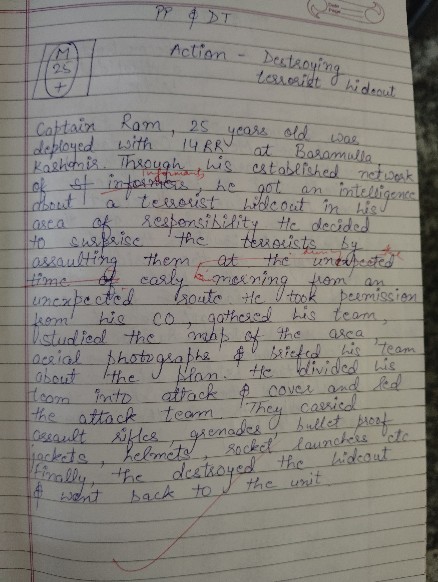 PP & DT
M
25
+
Action - Destroying
terrorist hideout
Captain Ram, 25 years old was
deployed with 14 RR at Baramulla
Kashmir. Through his established network
informants
of informers, he got an intelligence
about a terrorist hideout in his
area of responsibility. He decided
to surprise the terrorists by
assaulting them at the unexpected
time of early morning from an
unexpected route. He took permission
from his CO, gathered his team,
studied the map of the area,
aerial photographs & briefed his team
about the plan. He divided his
team into attack & cover and led
the attack team. They carried
assault rifles, grenades, bullet proof
jackets, helmets, rocket launchers etc
finally, the destroyed the hideout
& went back to the unit.